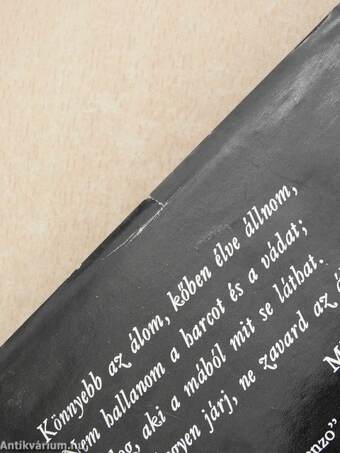 Könnyebb az álom, kőben élve állnom,
Nem hallanom a harcot és a vádat;
aki a mából mit se láthat.
járj, ne zavard az
Antikvárium.hu